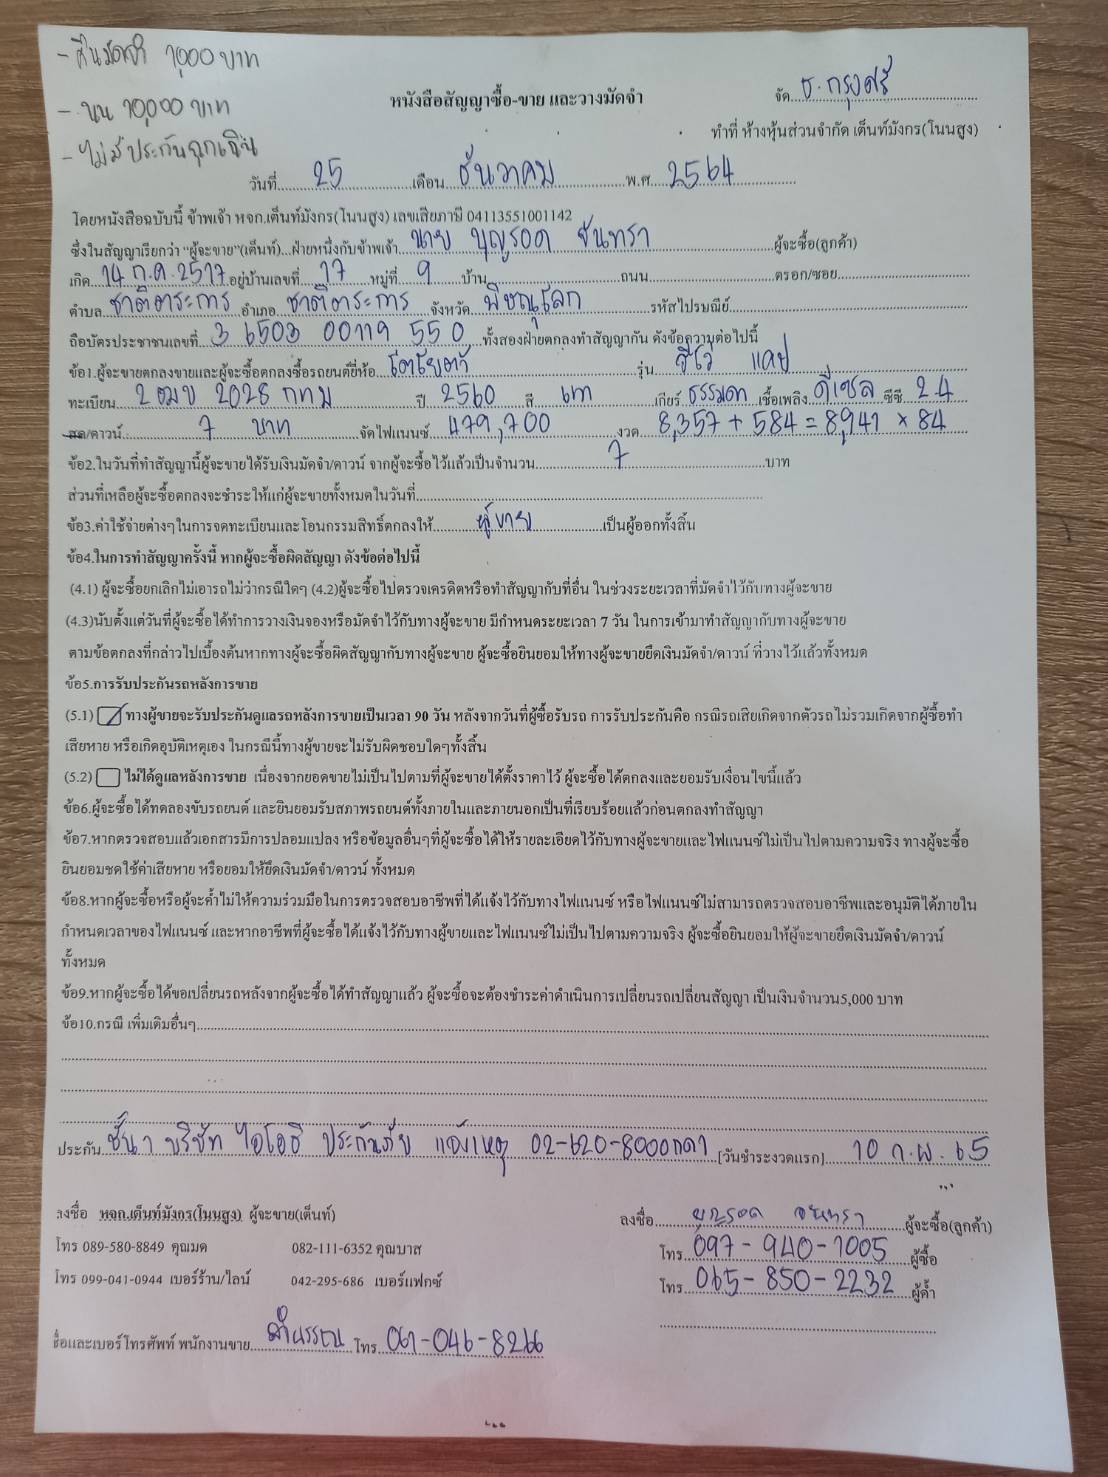 - คืนมัดจำ 1,000 บาท
- นน 10,000 บาท
- ไม่มีประกันฉุกเฉิน
หนังสือสัญญาซื้อ-ขาย และวางมัดจำ
จัด ธ.กรุงศรี
ทำที่ ห้างหุ้นส่วนจำกัด เต็นท์มังกร(โนนสูง)
วันที่ 25 เดือน ธันวาคม พ.ศ. 2564
โดยหนังสือฉบับนี้ ข้าพเจ้า หจก.เต็นท์มังกร(โนนสูง) เลขเสียภาษี 04113551001142
ซึ่งในสัญญาเรียกว่า "ผู้จะขาย"(เต็นท์)...ฝ่ายหนึ่งกับข้าพเจ้า นาย บุญรอด จันทรา ผู้จะซื้อ(ลูกค้า)
เกิด 14 ก.ค. 2517 อยู่บ้านเลขที่ 17 หมู่ที่ 9 บ้าน ถนน ตรอก/ซอย
ตำบล ชาติตระการ อำเภอ ชาติตระการ จังหวัด พิษณุโลก รหัสไปรษณีย์
ถือบัตรประชาชนเลขที่ 3 6503 00119 55 0 ทั้งสองฝ่ายตกลงทำสัญญากัน ดังข้อความต่อไปนี้
ข้อ1.ผู้จะขายตกลงขายและผู้จะซื้อตกลงซื้อรถยนต์ยี่ห้อ โตโยต้า รุ่น รีโว่ แคป
ทะเบียน 2ฒข 2028 กทม ปี 2560 สี เทา เกียร์ ธรรมดา เชื้อเพลิง ดีเซล ซีซี 2.4
สด/ดาวน์ 7 บาท จัดไฟแนนซ์ 479,700 งวด 8,357 + 584 = 8,941 x 84
ข้อ2.ในวันที่ทำสัญญานี้ผู้จะขายได้รับเงินมัดจำ/ดาวน์ จากผู้จะซื้อไว้แล้วเป็นจำนวน 7 บาท
ส่วนที่เหลือผู้จะซื้อตกลงจะชำระให้แก่ผู้จะขายทั้งหมดในวันที่
ข้อ3.ค่าใช้จ่ายต่างๆในการจดทะเบียนและโอนกรรมสิทธิ์ตกลงให้ ผู้ขาย เป็นผู้ออกทั้งสิ้น
ข้อ4.ในการทำสัญญาครั้งนี้ หากผู้จะซื้อผิดสัญญา ดังข้อต่อไปนี้
(4.1) ผู้จะซื้อยกเลิกไม่เอารถไม่ว่ากรณีใดๆ (4.2)ผู้จะซื้อไปตรวจเครดิตหรือทำสัญญากับที่อื่น ในช่วงระยะเวลาที่มัดจำไว้กับทางผู้จะขาย
(4.3)นับตั้งแต่วันที่ผู้จะซื้อได้ทำการวางเงินจองหรือมัดจำไว้กับทางผู้จะขาย มีกำหนดระยะเวลา 7 วัน ในการเข้ามาทำสัญญากับทางผู้จะขาย
ตามข้อตกลงที่กล่าวไปเบื้องต้นหากทางผู้จะซื้อผิดสัญญากับทางผู้จะขาย ผู้จะซื้อยินยอมให้ทางผู้จะขายยึดเงินมัดจำ/ดาวน์ ที่วางไว้แล้วทั้งหมด
ข้อ5.การรับประกันรถหลังการขาย
(5.1) ทางผู้ขายจะรับประกันดูแลรถหลังการขายเป็นเวลา 90 วัน หลังจากวันที่ผู้ซื้อรับรถ การรับประกันคือ กรณีรถเสียเกิดจากตัวรถ ไม่รวมเกิดจากผู้ซื้อทำ
เสียหาย หรือเกิดอุบัติเหตุเอง ในกรณีนี้ทางผู้ขายจะไม่รับผิดชอบใดๆทั้งสิ้น
(5.2) ไม่ได้ดูแลหลังการขาย เนื่องจากยอดขายไม่เป็นไปตามที่ผู้จะขายได้ตั้งราคาไว้ ผู้จะซื้อได้ตกลงและยอมรับเงื่อนไขนี้แล้ว
ข้อ6.ผู้จะซื้อได้ทดลองขับรถยนต์ และยินยอมรับสภาพรถยนต์ทั้งภายในและภายนอกเป็นที่เรียบร้อยแล้วก่อนตกลงทำสัญญา
ข้อ7.หากตรวจสอบแล้วเอกสารมีการปลอมแปลง หรือข้อมูลอื่นๆที่ผู้จะซื้อได้ให้รายละเอียดไว้กับทางผู้จะขายและไฟแนนซ์ไม่เป็นไปตามความจริง ทางผู้จะซื้อ
ยินยอมชดใช้ค่าเสียหาย หรือยอมให้ยึดเงินมัดจำ/ดาวน์ ทั้งหมด
ข้อ8.หากผู้จะซื้อหรือผู้จะค้ำไม่ให้ความร่วมมือในการตรวจสอบอาชีพที่ได้แจ้งไว้กับทางไฟแนนซ์ หรือไฟแนนซ์ไม่สามารถตรวจสอบอาชีพและอนุมัติได้ภายใน
กำหนดเวลาของไฟแนนซ์ และหากอาชีพที่ผู้จะซื้อได้แจ้งไว้กับทางผู้ขายและไฟแนนซ์ไม่เป็นไปตามความจริง ผู้จะซื้อยินยอมให้ผู้จะขายยึดเงินมัดจำ/ดาวน์
ทั้งหมด
ข้อ9.หากผู้จะซื้อได้ขอเปลี่ยนรถหลังจากผู้จะซื้อได้ทำสัญญาแล้ว ผู้จะซื้อจะต้องชำระค่าดำเนินการเปลี่ยนรถเปลี่ยนสัญญา เป็นเงินจำนวน5,000 บาท
ข้อ10.กรณี เพิ่มเติมอื่นๆ
ประกัน ชั้น 1 บริษัท ไอโออิ ประกันภัย แจ้งเหตุ 02-620-8000กด1 [วันชำระงวดแรก] 10 ก.พ. 65
ลงชื่อ หจก.เต็นท์มังกร(โนนสูง) ผู้จะขาย(เต็นท์)
ลงชื่อ บุญรอด จันทรา ผู้จะซื้อ(ลูกค้า)
โทร 089-580-8849 คุณมด 082-111-6352 คุณบาส
โทร 097-940-1005 ผู้ซื้อ
โทร 099-041-0944 เบอร์ร้าน/ไลน์ 042-295-686 เบอร์แฟกซ์
โทร 065-850-2232 ผู้ค้ำ
ชื่อและเบอร์โทรศัพท์ พนักงานขาย โทร 061-046-8266